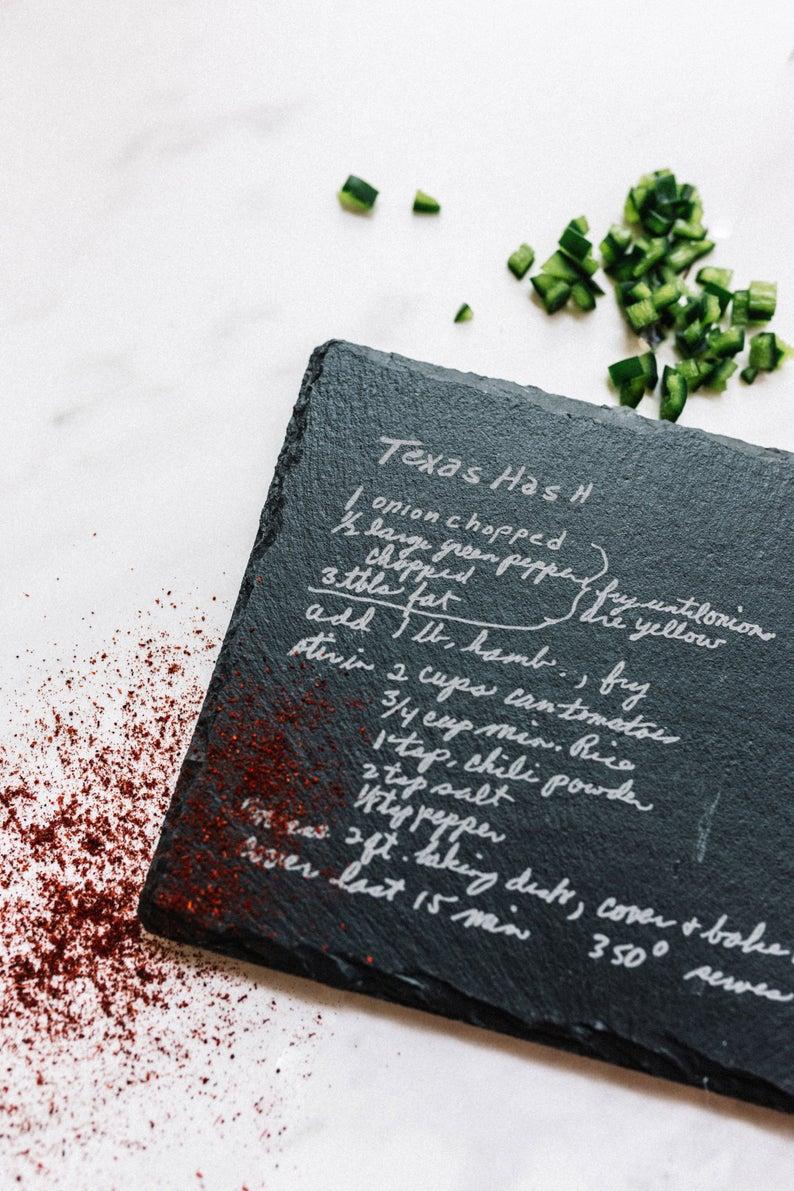 Texas Hash
1 onion chopped
1/2 large green pepper
chopped
3 tbls fat
fry until onions
are yellow
add 1 lb, hamb., fry
stir in 2 cups can tomatoes
3/4 cup min. Rice
1 tsp, chili powder
2 tsp salt
pepper
2 qt. baking dish, cover & bake
last 15 min 350° serves